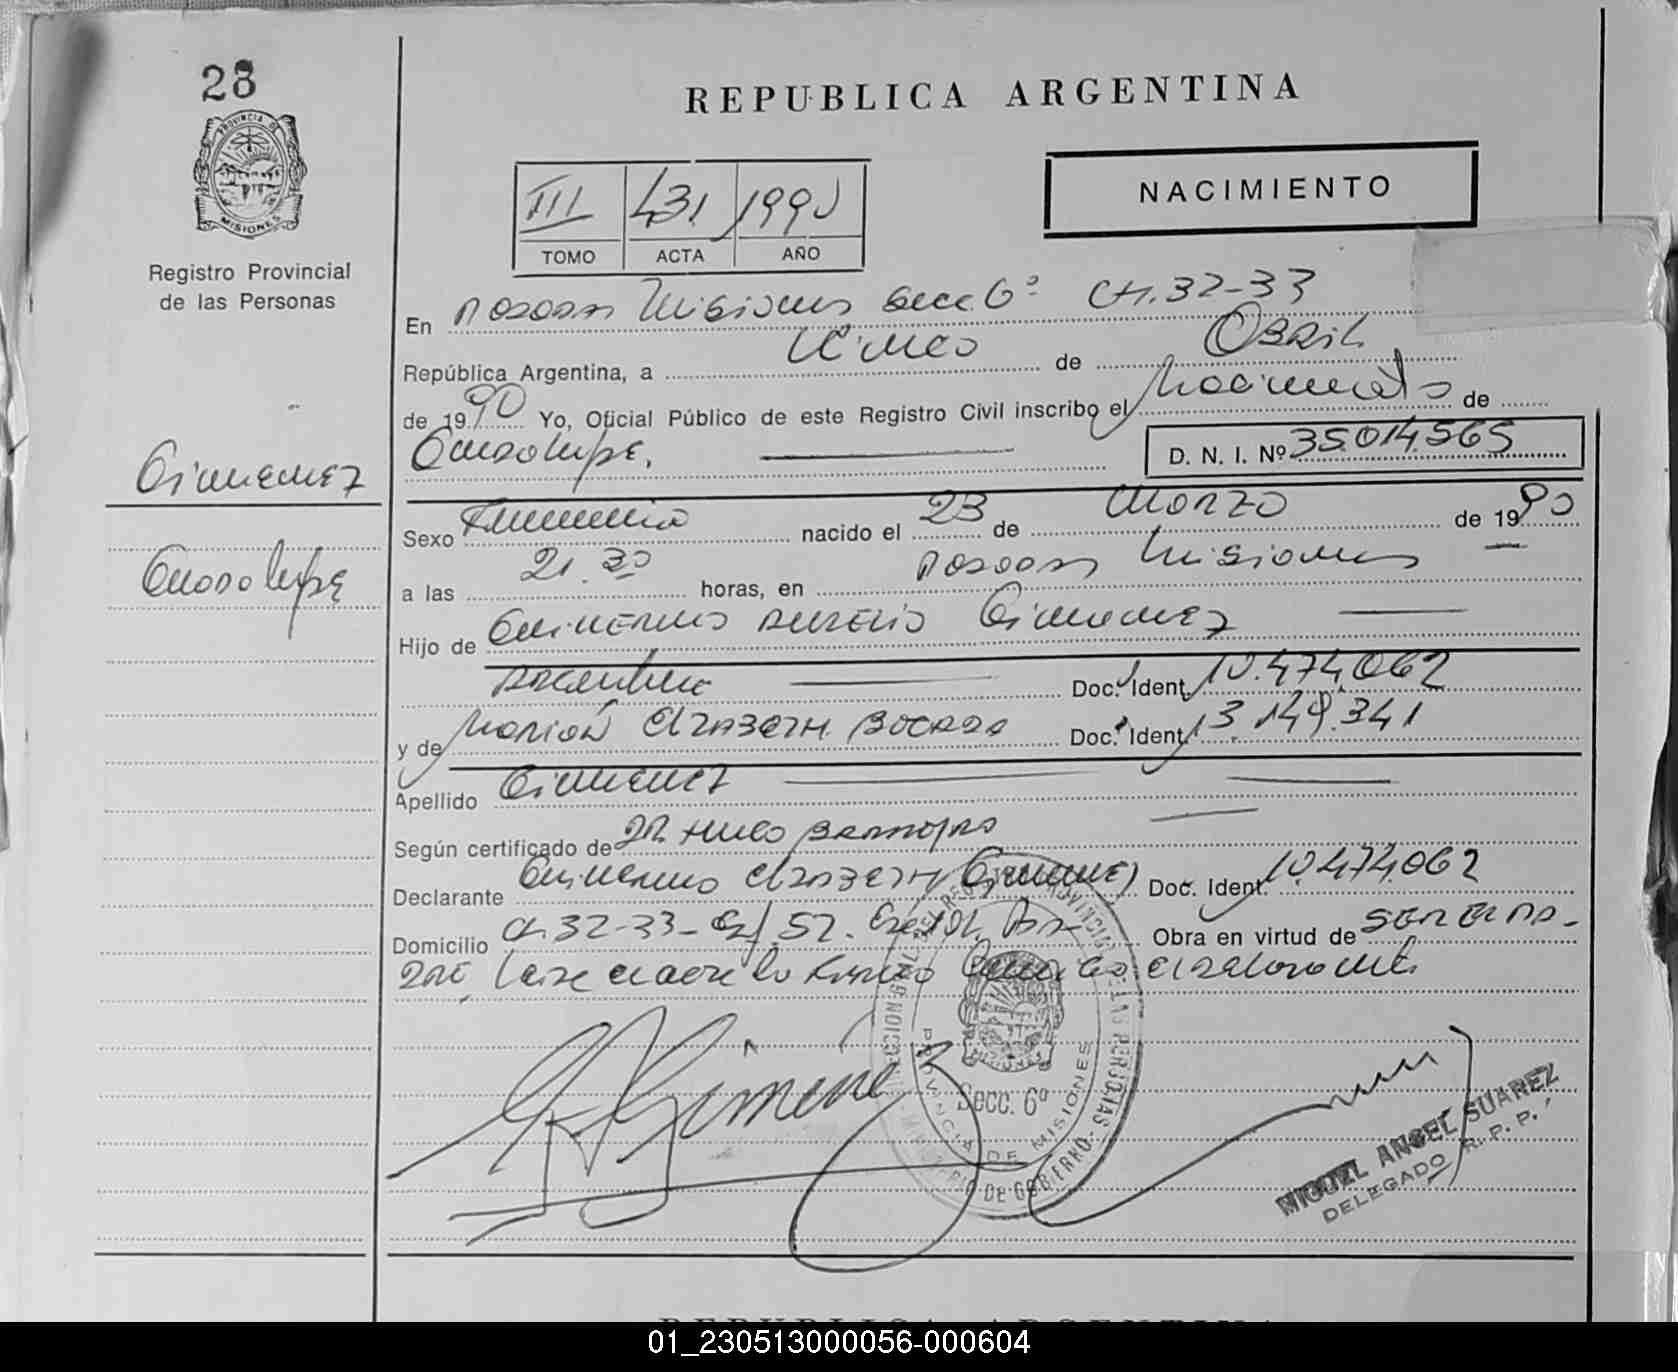 28
REPUBLICA ARGENTINA
PROVINCIA DE
MISIONES
Registro Provincial
de las Personas
NACIMIENTO
III 431 1990
TOMO ACTA AÑO
En Posadas Misiones Secc. 6ª Ch. 32-33
República Argentina, a Cinco de Abril
de 1990 Yo, Oficial Público de este Registro Civil inscribo el Nacimiento de
Guadalupe.
D. N. I. Nº 35.014.565
Gimenez
Guadalupe
Sexo Femenino nacido el 23 de Marzo de 1990
a las 21.30 horas, en Posadas Misiones
Hijo de Guillermo Aurelio Gimenez
Argentino Doc. Ident. 10.474.062
y de Elizabeth Doc. Ident. 13.149.341
Apellido Gimenez
Según certificado de Dr Hugo
Declarante Guillermo Elizabeth Gimenez Doc. Ident. 10.474.062
Domicilio Ch. 32-33- 52. Obra en virtud de
Gimenez
Secc. 6ª
PROVINCIA DE MISIONES
MINISTERIO DE GOBIERNO
MIGUEL ANGEL SUAREZ
DELEGADO R. P. P.
REPUBLICA ARGENTINA
01_230513000056-000604